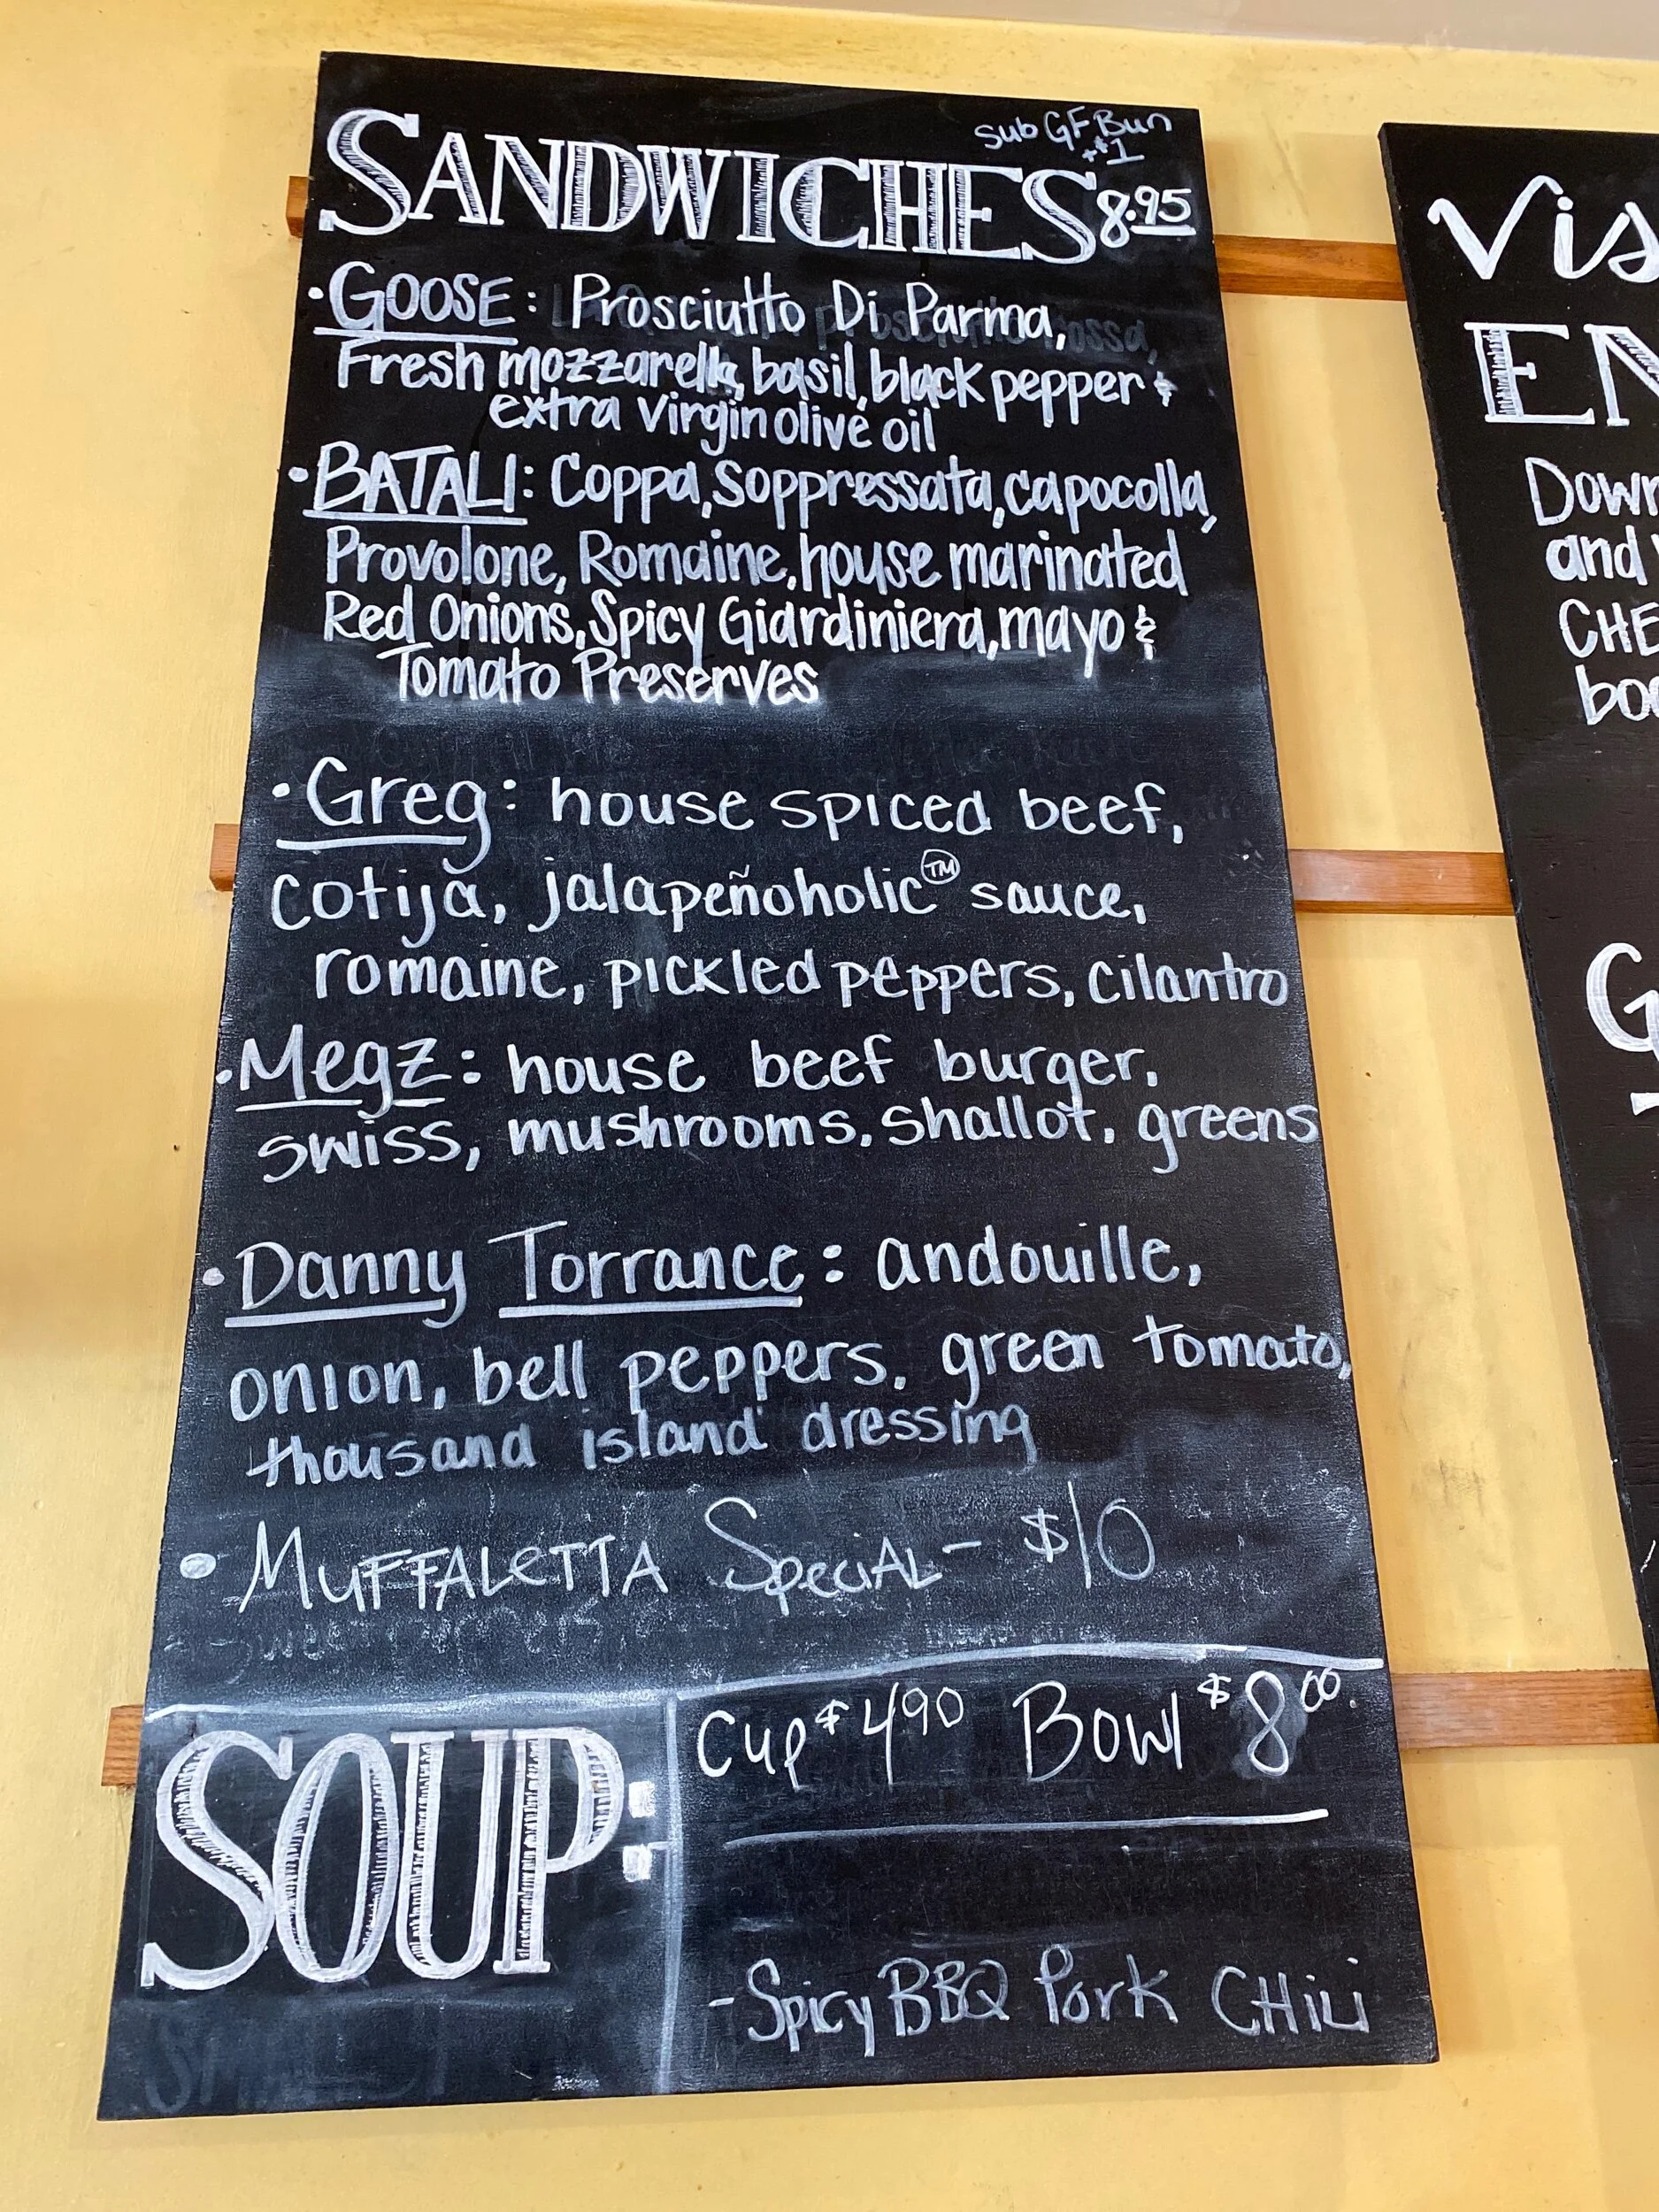 sub GF Bun
+$1
SANDWICHES 8.95
• GOOSE: Prosciutto Di Parma,
Fresh mozzarella, basil, black pepper &
extra virgin olive oil
• BATALI: Coppa, Soppressata, capocolla,
Provolone, Romaine, house marinated
Red Onions, Spicy Giardiniera, mayo &
Tomato Preserves
• Greg: house spiced beef,
cotija, jalapeñoholic™ sauce,
romaine, pickled peppers, cilantro
• Megz: house beef burger,
swiss, mushrooms, shallot, greens
• Danny Torrance: andouille,
onion, bell peppers, green tomato,
thousand island dressing
• MUFFALETTA SPECIAL - $10
SOUP:
Cup $4.90 Bowl $8.00
- Spicy BBQ Pork CHILI
Vis
EN
Down
and
CHE
boo
G